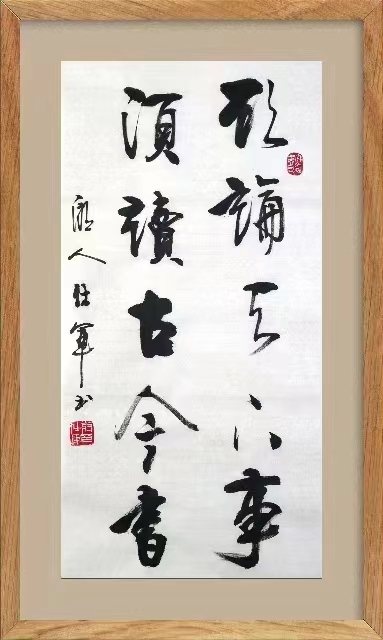 欲論天下事
須讀古今書
人 軍书